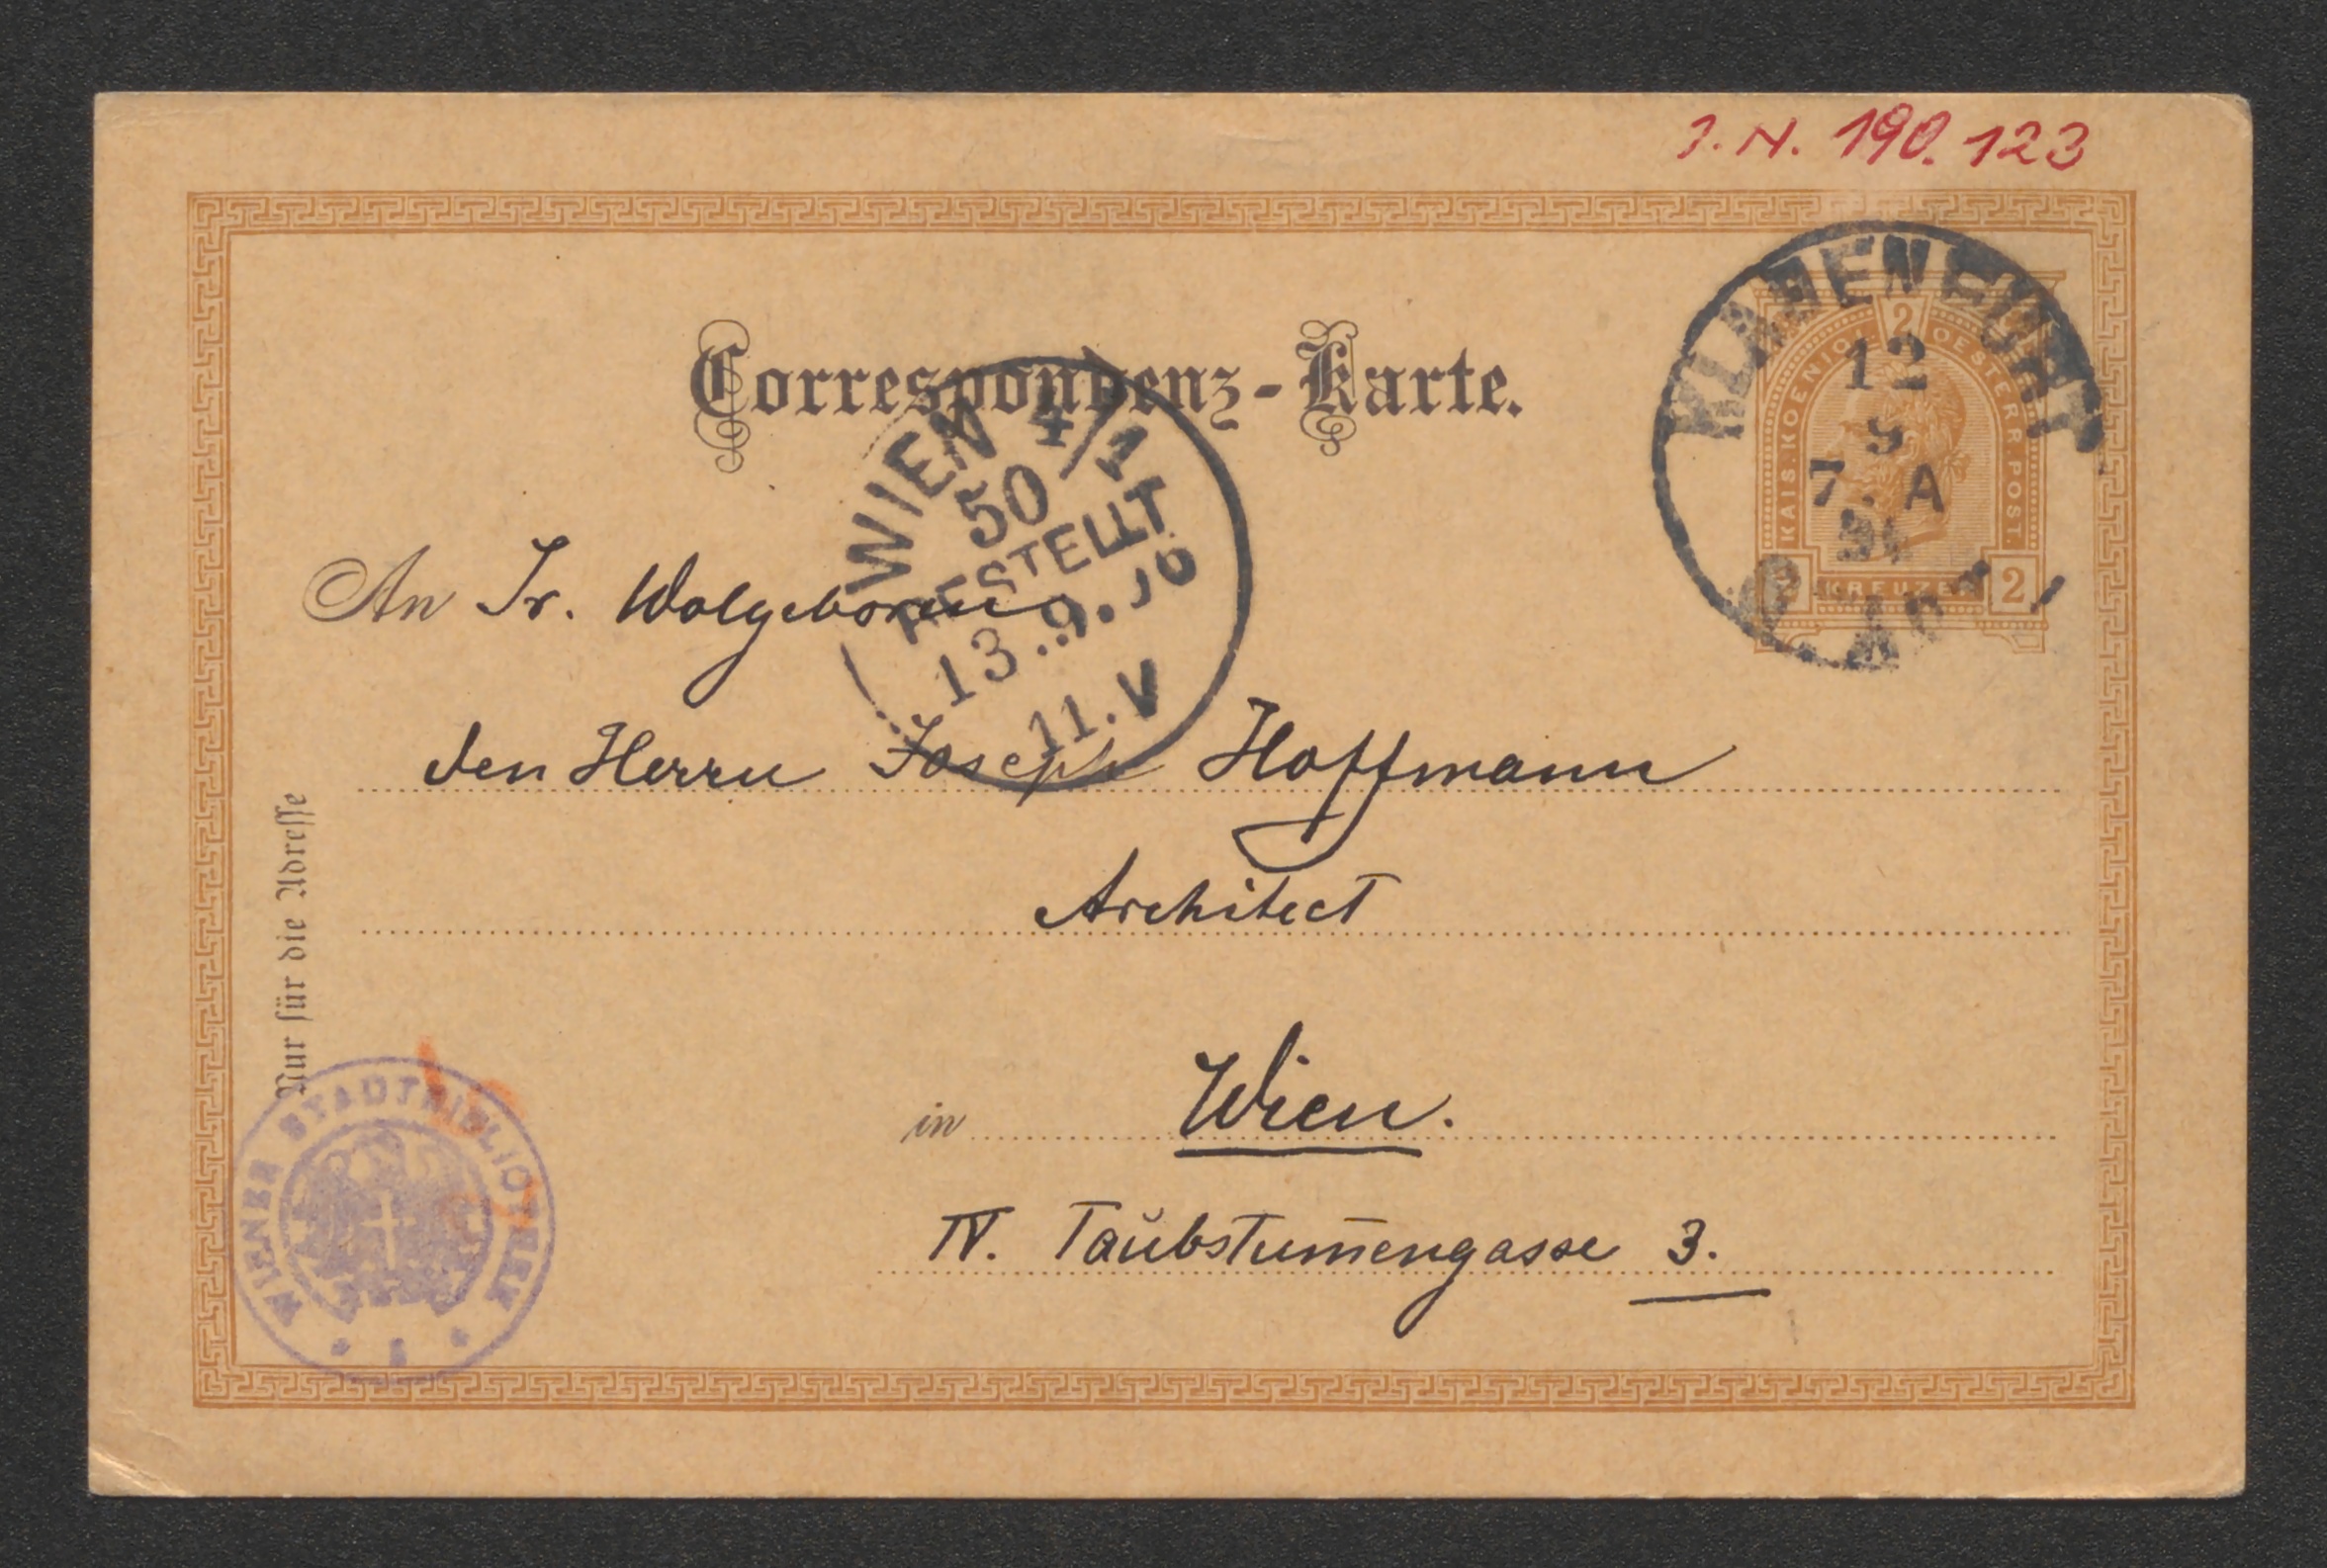 J. N. 190.123
Correspondenz-Karte.
KLAGENFURT
12
9
7. A
2
KAIS. KOENIGL. OESTERR. POST.
2 KREUZER 2
WIEN 4/1
50
BESTELLT
13..9.96
11.V
An Sr. Wolgeboren
den Herrn Joseph Hoffmann
Architect
in Wien.
IV. Taŭbstum̄engasse 3.
Nur für die Adresse
WIENER STADTBIBLIOTHEK